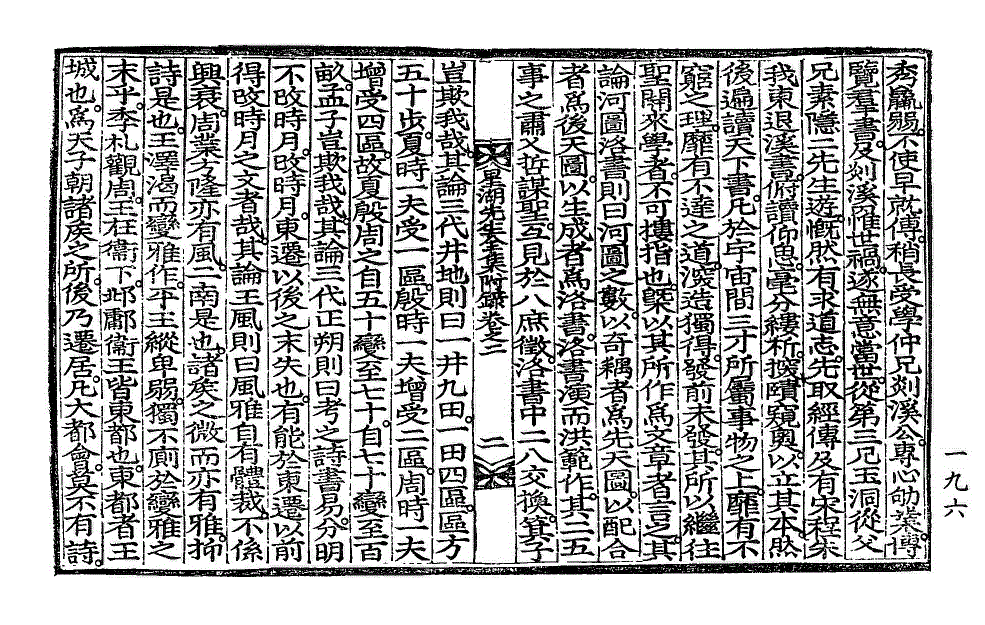 秀羸弱。不使早就傅。稍長受學仲兄剡溪公。專心劬業。博
覽羣書。及剡溪惟世禍。遂無意當世。從第三兄玉洞從父
兄素隱二先生遊。慨然有求道志。先取經傳及有宋程朱
我東退溪書。俯讀仰思。毫分縷析。探賾窺奧。以立其本。然
後遍讀天下書。凡於宇宙間三才所屬事物之上。靡有不
窮之理。靡有不達之道。深造獨得。發前未發。其所以繼往
聖開來學者。不可摟指也。槩以其所作爲文章者言之。其
論河圖洛書則曰河圖之數。以奇耦者爲先天圖。以配合
者爲後天圖。以生成者爲洛書。洛書演而洪範作。其二五
事之肅乂哲謀聖。互見於八庶徵。洛書中二八交換。箕子
星湖先生全集附錄卷之二 二
豈欺我哉。其論三代井地則曰一井九田。一田四區。區方
五十步。夏時一夫受一區。殷時一夫增受二區。周時一夫
增受四區。故夏殷周之自五十變至七十。自七十變至百
畝。孟子豈欺我哉。其論三代正朔則曰考之詩書易。分明
不改時月。改時月。東遷以後之末失也。有能於東遷以前
得改時月之文者哉。其論王風則曰風雅自有體裁。不係
興衰。周業方隆亦有風。二南是也。諸矦之微而亦有雅。抑
詩是也。王澤渴而變雅作。平王縱卑弱。獨不廁於變雅之
末乎。季札觀周。王在衞下。邶鄘衞王皆東都也。東都者王
城也。爲天子朝諸矦之所。後乃遷居。凡大都會。莫不有詩。
一九六